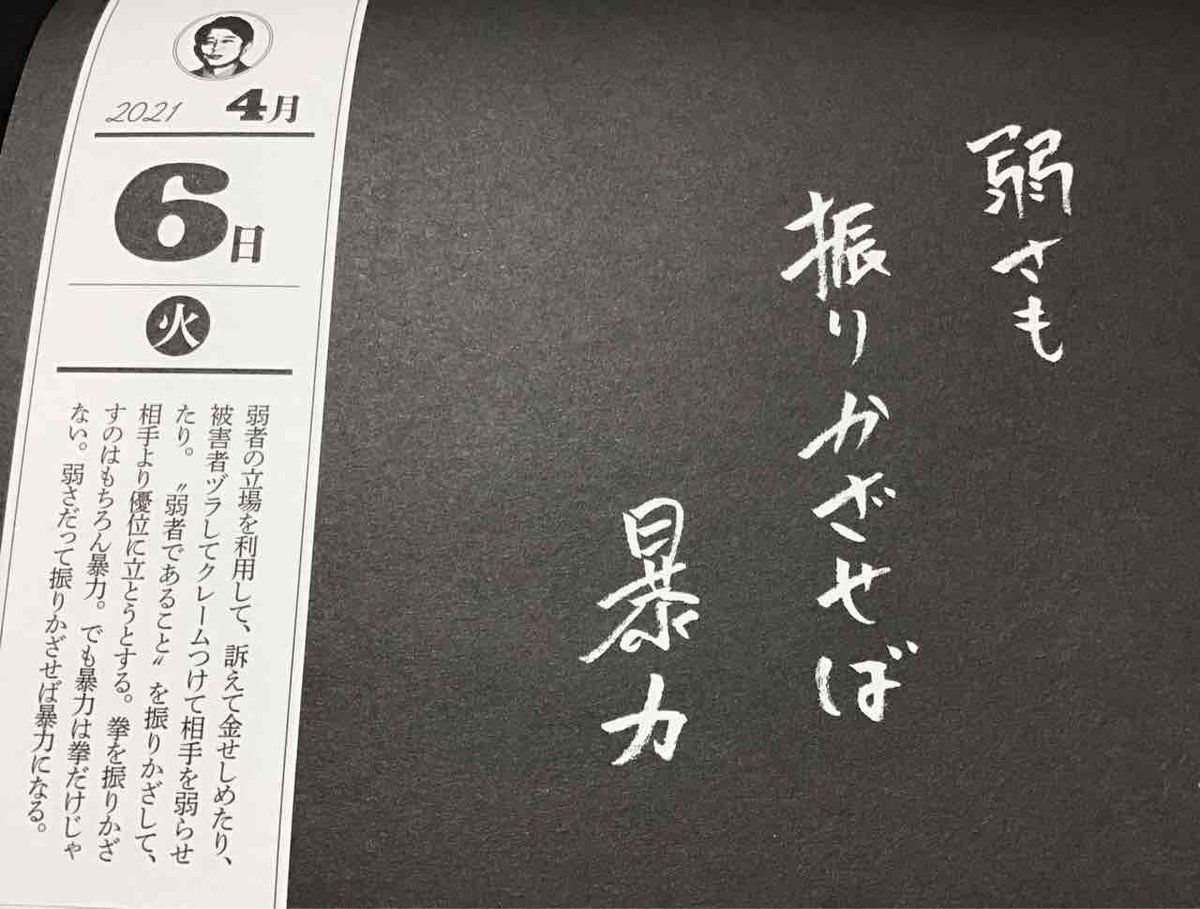 2021 4月
6日
火
弱さも
振りかざせば
暴力
弱者の立場を利用して、訴えて金せしめたり、
被害者ヅラしてクレームつけて相手を弱らせ
たり。〝弱者であること〟を振りかざして、
相手より優位に立とうとする。拳を振りかざ
すのはもちろん暴力。でも暴力は拳だけじゃ
ない。弱さだって振りかざせば暴力になる。